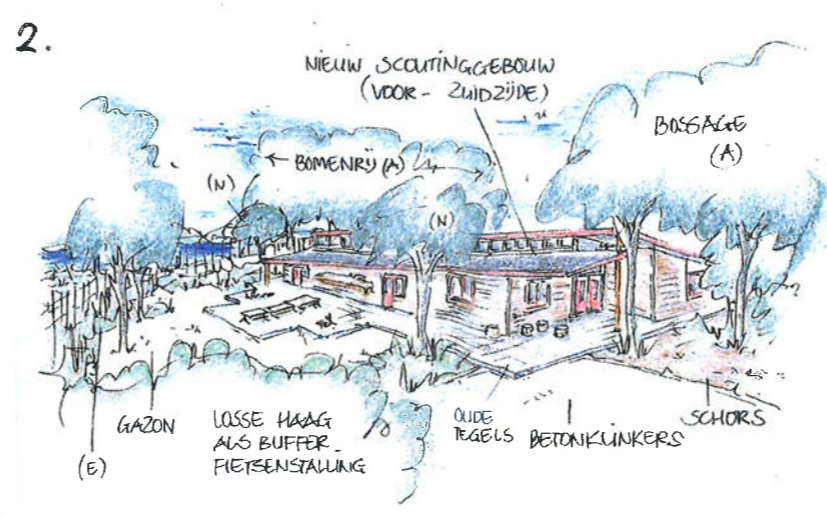 2.
NIEUW SCOUTINGGEBOUW
(VOOR- ZUIDZIJDE)
BOSSAGE
(A)
← BOMENRIJ (A) →
(N)
(N)
GAZON
(E)
LOSSE HAAG
ALS BUFFER
FIETSENSTALLING
OUDE
TEGELS
BETONKLINKERS
SCHORS